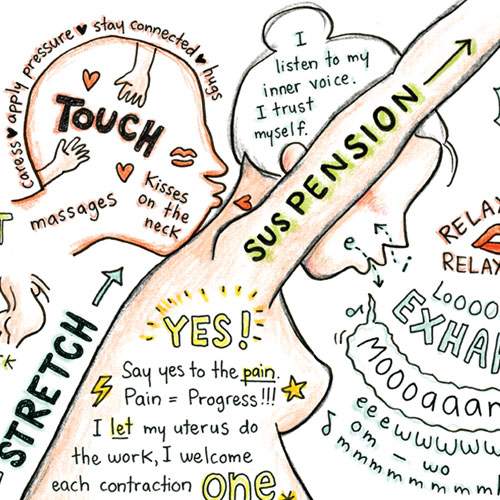 caress ♥ apply pressure ♥ stay connected ♥ hugs
TOUCH
Kisses
on the
neck
massages
I
listen to my
inner voice.
I trust
myself.
SUSPENSION
STRETCH
YES!
Say yes to the pain.
Pain = Progress!!!
I let my uterus do
the work, I welcome
each contraction
one
RELAX
RELAX
e
i
a
EXHA
Mooooaaa
eeewwwww
om - wo
mmmmmmmm